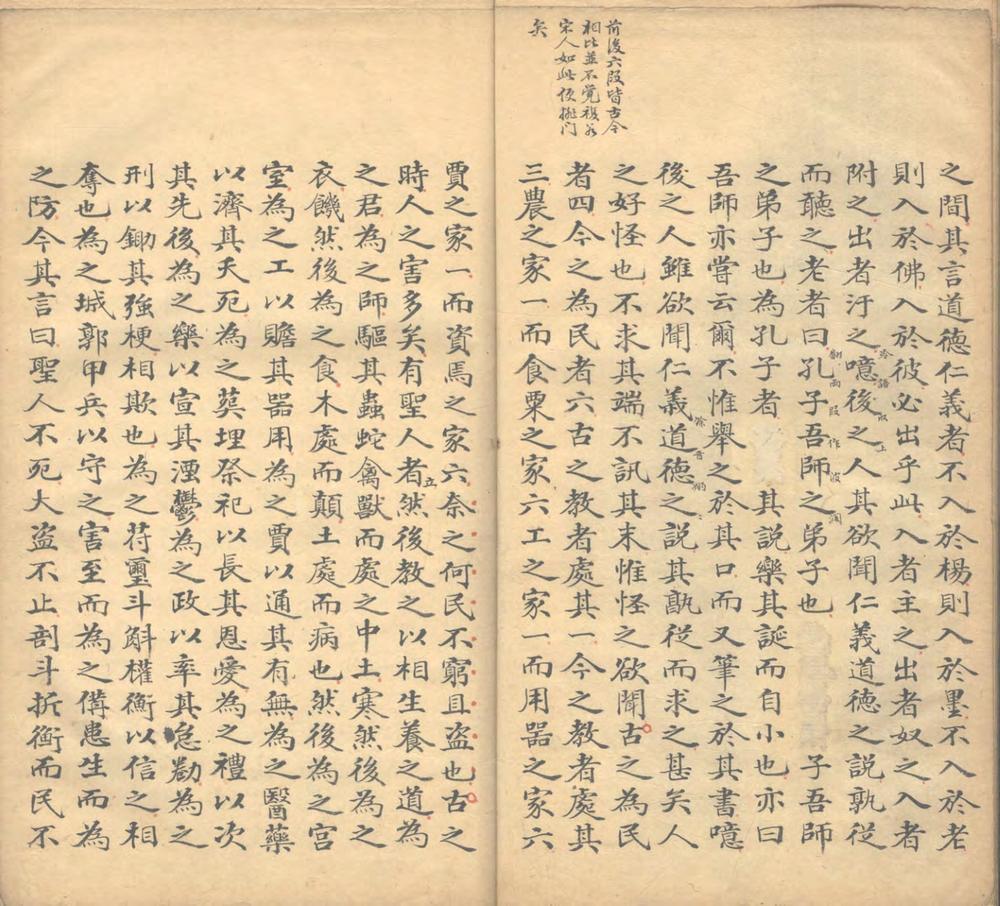 前後六段皆古今
相比並不覺複若
宋人如此便排門
矣
之間其言道德仁義者不入於楊則入於墨不入於老
則入於佛入於彼必出乎此入者主之出者奴之入者
附之出者汙之噫後之人其欲聞仁義道德之說孰從
而聽之老者曰孔子吾師之弟子也 子吾師
之弟子也為孔子者 其說樂其誕而自小也亦曰
吾師亦嘗云爾不惟舉之於其口而又筆之於其書噫
後之人雖欲聞仁義道德之說其孰從而求之甚矣人
之好怪也不求其端不訊其末惟怪之欲聞古之為民
者四今之為民者六古之教者處其一今之教者處其
三農之家一而食粟之家六工之家一而用器之家六
賈之家一而資焉之家六奈之何民不窮且盜也古之
時人之害多矣有聖人者立然後教之以相生養之道為
之君為之師驅其蟲蛇禽獸而處之中土寒然後為之
衣饑然後為之食木處而顛土處而病也然後為之宮
室為之工以贍其器用為之賈以通其有無為之醫藥
以濟其夭死為之葬埋祭祀以長其恩愛為之禮以次
其先後為之樂以宣其湮鬱為之政以率其怠勌為之
刑以鋤其強梗相欺也為之符璽斗斛權衡以信之相
奪也為之城郭甲兵以守之害至而為之備患生而為
之防今其言曰聖人不死大盜不止剖斗折衡而民不